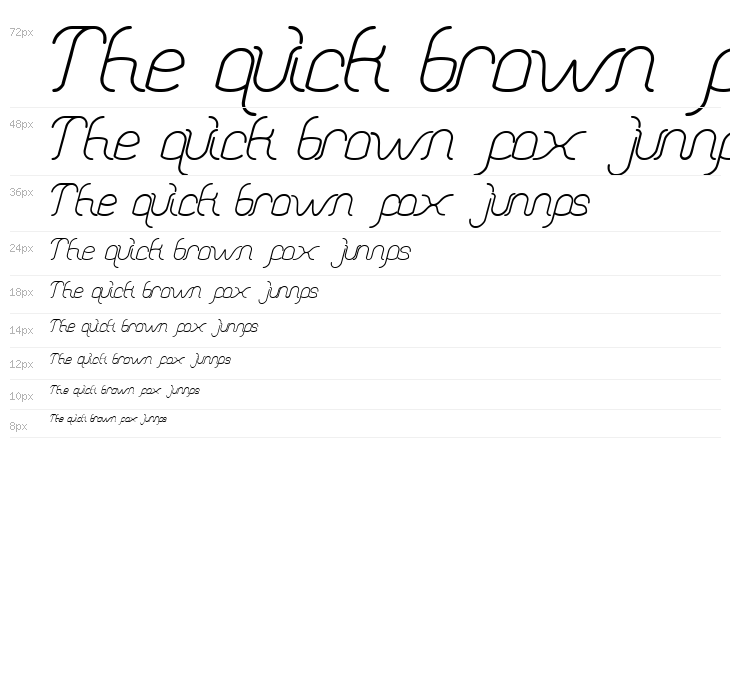 72px The quick brown
48px The quick brown pox jump
36px The quick brown pox jumps
24px The quick brown pox jumps
18px The quick brown pox jumps
14px The quick brown pox jumps
12px The quick brown pox jumps
10px The quick brown pox jumps
8px The quick brown pox jumps